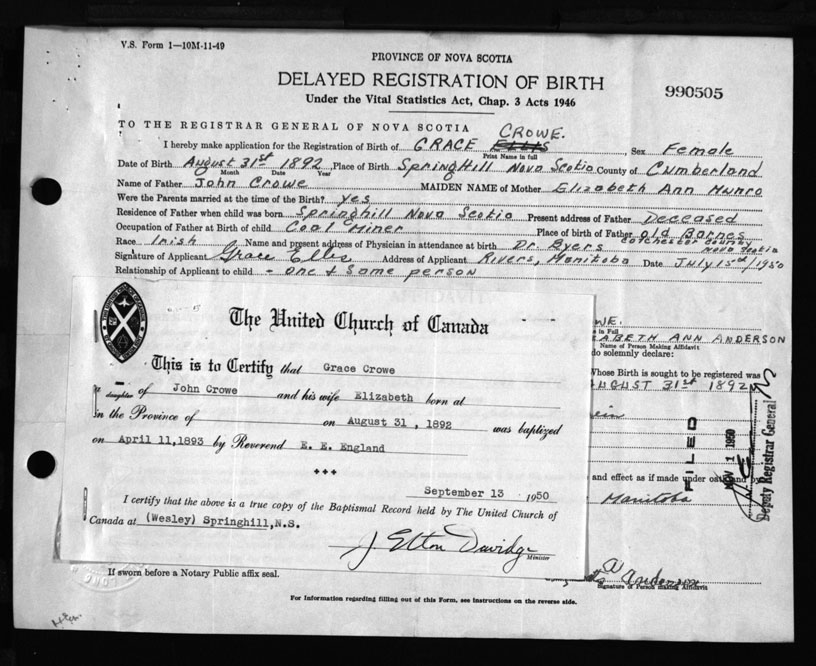 V.S. Form 1—10M-11-49
PROVINCE OF NOVA SCOTIA
DELAYED REGISTRATION OF BIRTH
990505
Under the Vital Statistics Act, Chap. 3 Acts 1946
TO THE REGISTRAR GENERAL OF NOVA SCOTIA CROWE.
I hereby make application for the Registration of Birth of GRACE ELLIS Sex Female
Print Name in full
Date of Birth August 31st 1892, Place of Birth Springhill Nova Scotia County of Cumberland
Month Date Year
Name of Father John Crowe MAIDEN NAME of Mother Elizabeth Ann Munro
Were the Parents married at the time of the Birth? Yes
Residence of Father when child was born Springhill Nova Scotia Present address of Father Deceased
Occupation of Father at Birth of child Coal Miner Place of birth of Father old Barnes
Colchester county
Nova Scotia
Race Irish Name and present address of Physician in attendance at birth Dr. Byers
Signature of Applicant Grace Ellis Address of Applicant Rivers, Manitoba Date July 15th/1950
Relationship of Applicant to child - one & same person
The United Church of Canada
This is to Certify that Grace Crowe
daughter of John Crowe and his wife Elizabeth born at
in the Province of on August 31, 1892 was baptized
on April 11, 1893 by Reverend E. E. England
September 13 1950
I certify that the above is a true copy of the Baptismal Record held by The United Church of
Canada at (Wesley) Springhill, N.S.
J Elton Davidge
Minister
WE.
in Full
ZABETH ANN ANDERSON
Name of Person Making Affidavit
do solemnly declare:
Whose Birth is sought to be registered was
AUGUST 31st 1892
ein
and effect as if made under oath and by
Manitoba
FILED
NOV 1 1950
Deputy Registrar General
Anderson
Signature of Person making Affidavit
If sworn before a Notary Public affix seal.
For Information regarding filling out of this Form, see instructions on the reverse side.